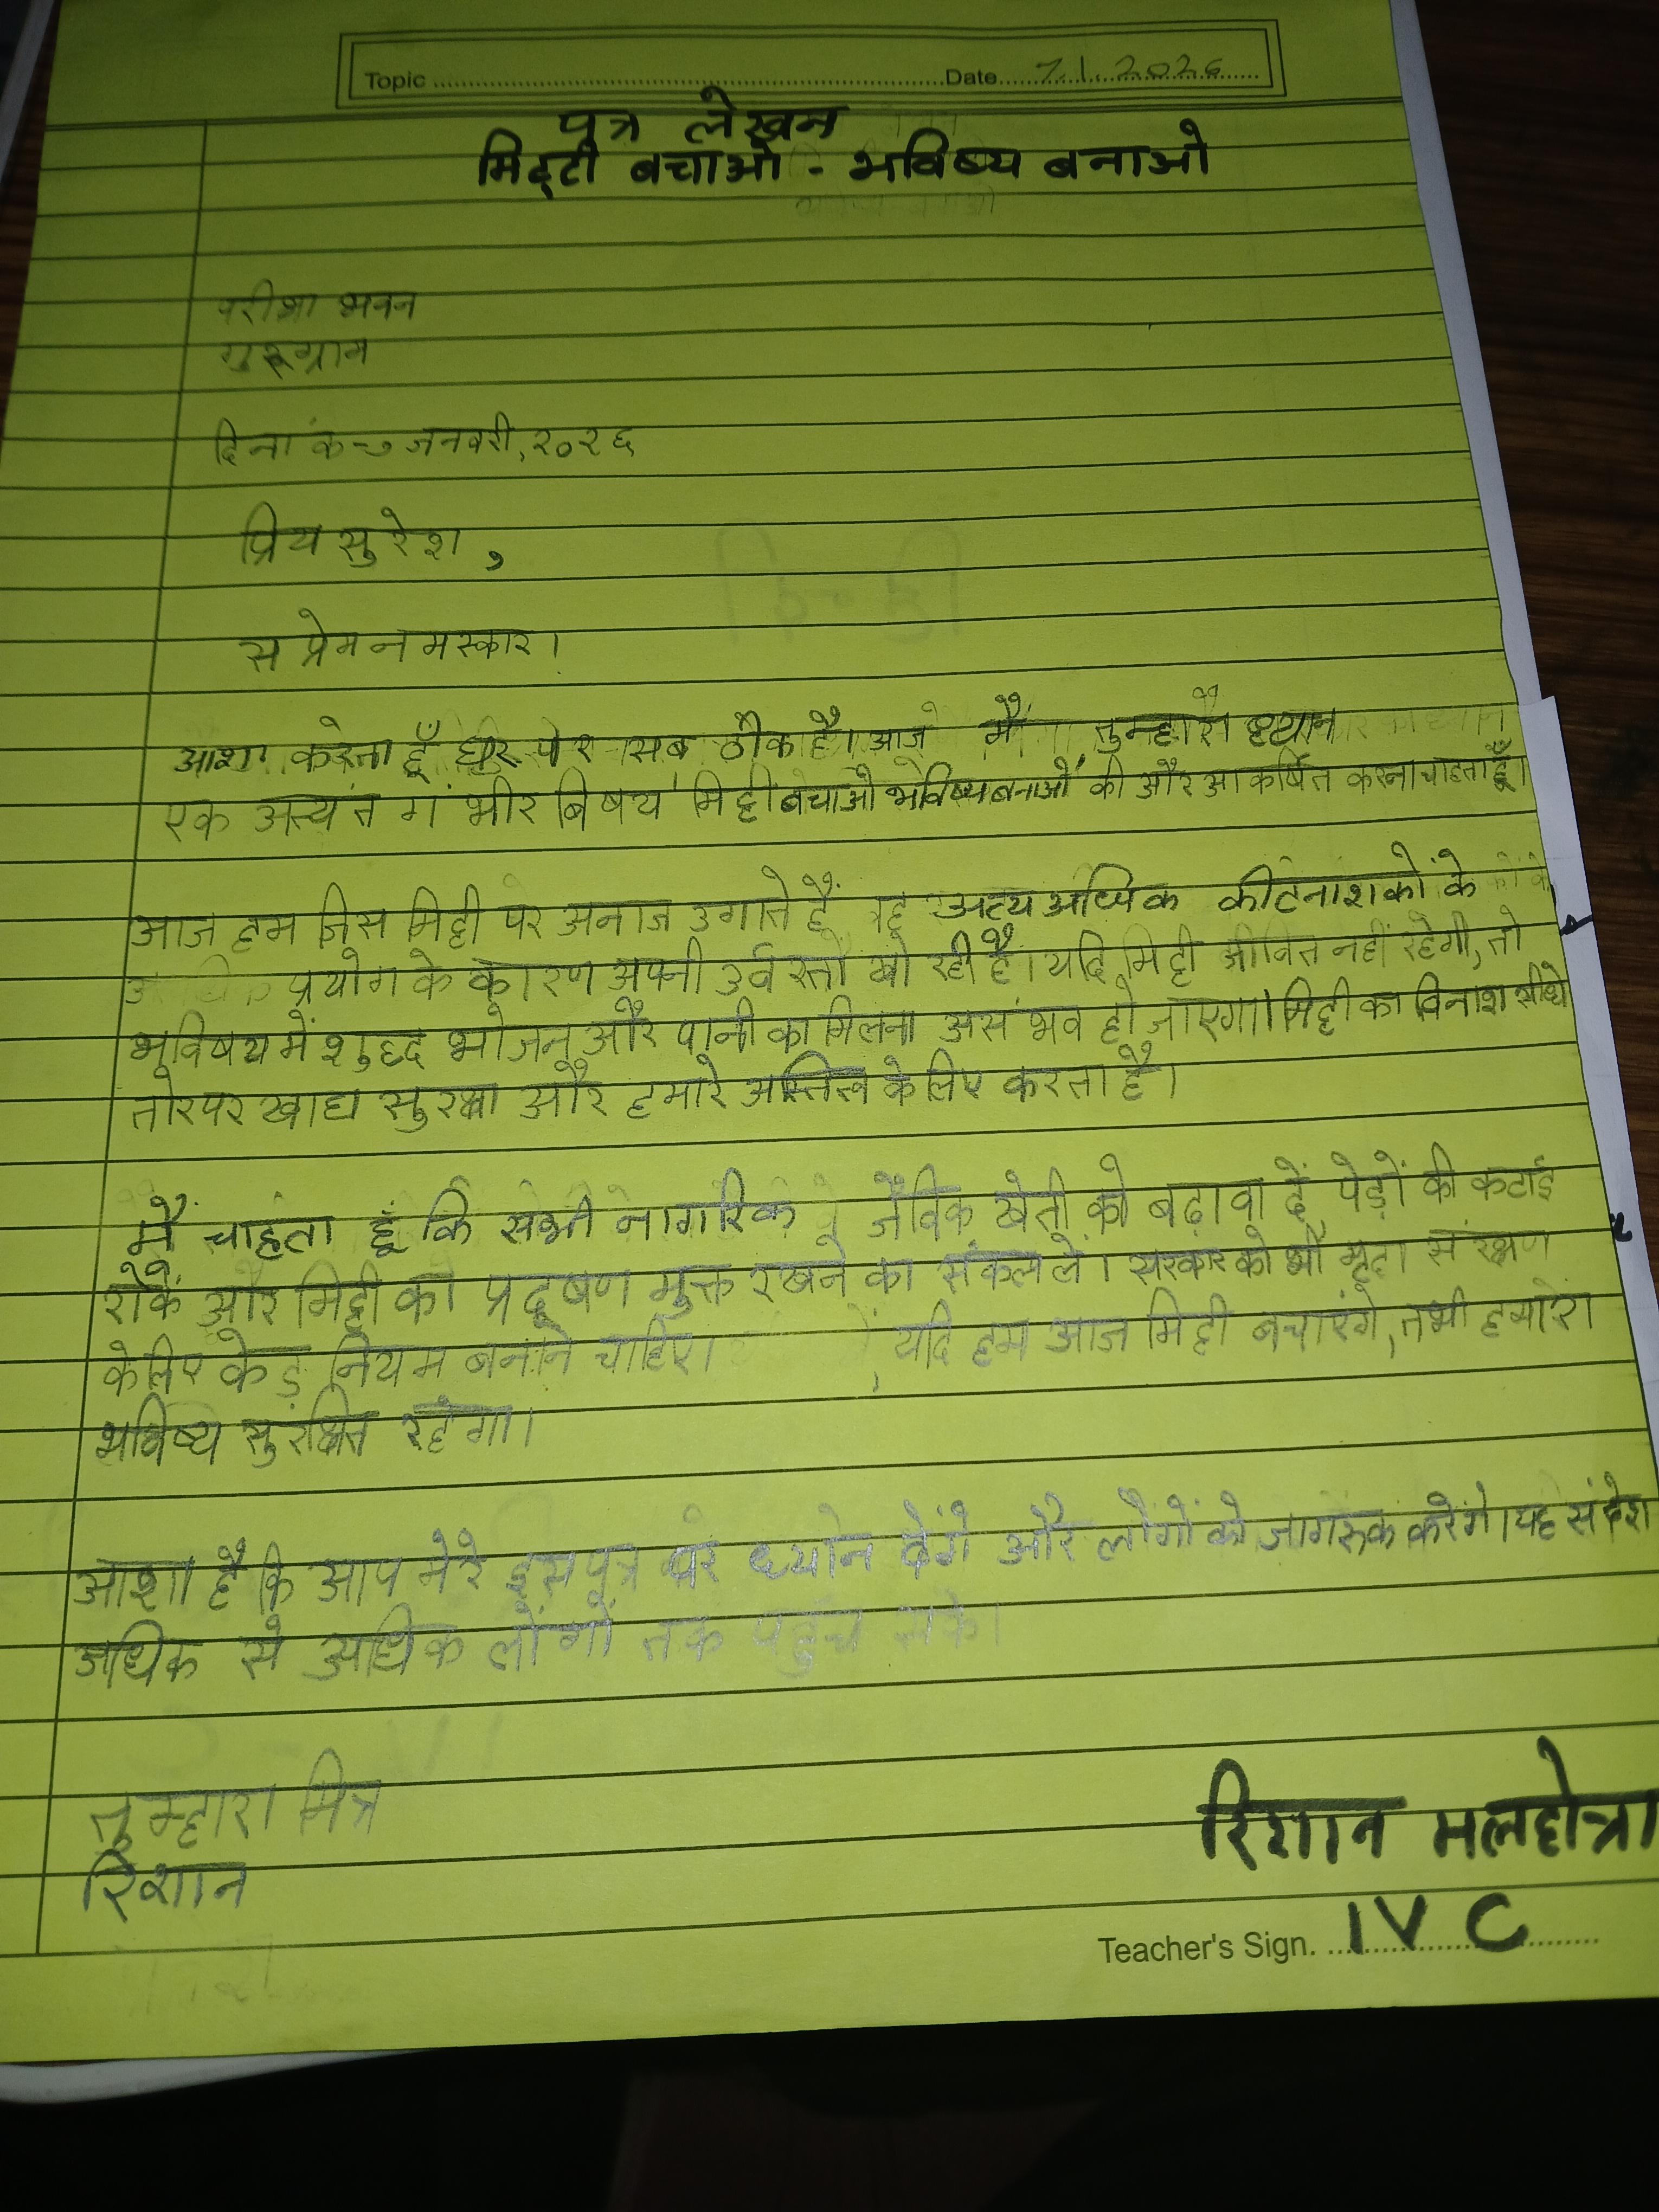 Topic Date 7.1.2026
पत्र लेखन
मिट्टी बचाओ - भविष्य बनाओ
परीक्षा भवन
गुरुग्राम
दिनांक-७ जनवरी, २०२६
प्रिय सुरेश,
सप्रेम नमस्कार।
आशा करता हूँ घर पर सब ठीक है। आज मैं तुम्हारा ध्यान
एक अत्यंत गंभीर बिषय 'मिट्टी बचाओ भविष्य बनाओ' की और आकर्षित करना चाहता हूँ।
आज हम जिस मिट्टी पर अनाज उगाते हैं वह अत्यअधिक कीटनाशकों के
प्रयोग के कारण अपनी उर्वरता खो रही है। यदि मिट्टी जीवित नहीं रहेगी, तो
भविषय में शुद्ध भोजन और पानी का मिलना असंभव हो जाएगा। मिट्टी का विनाश सीधे
तोर पर खाद्य सुरक्षा और हमारे अस्तित्व के लिए करता है।
मैं चाहता हूं कि सभी नागरिक जैविक खेती को बढ़ावा दें पेड़ों की कटाई
रोकें और मिट्टी को प्रदूषण मुक्त रखने का संकल्प लें। सरकार को भी मृदा संरक्षण
के लिए कड़े नियम बनाने चाहिए। यदि हम आज मिट्टी बचाएंगे, तभी हमारा
भविष्य सुरक्षित रहेगा।
आशा है कि आप मेरे इस पत्र पर ध्यान देंगे और लोंगों को जागरूक करेंगे। यह संदेश
अधिक से अधिक लोंगों तक पहुंच सके।
तुम्हारा मित्र
रिशान
रिशान मलहोत्रा
Teacher's Sign. IV C